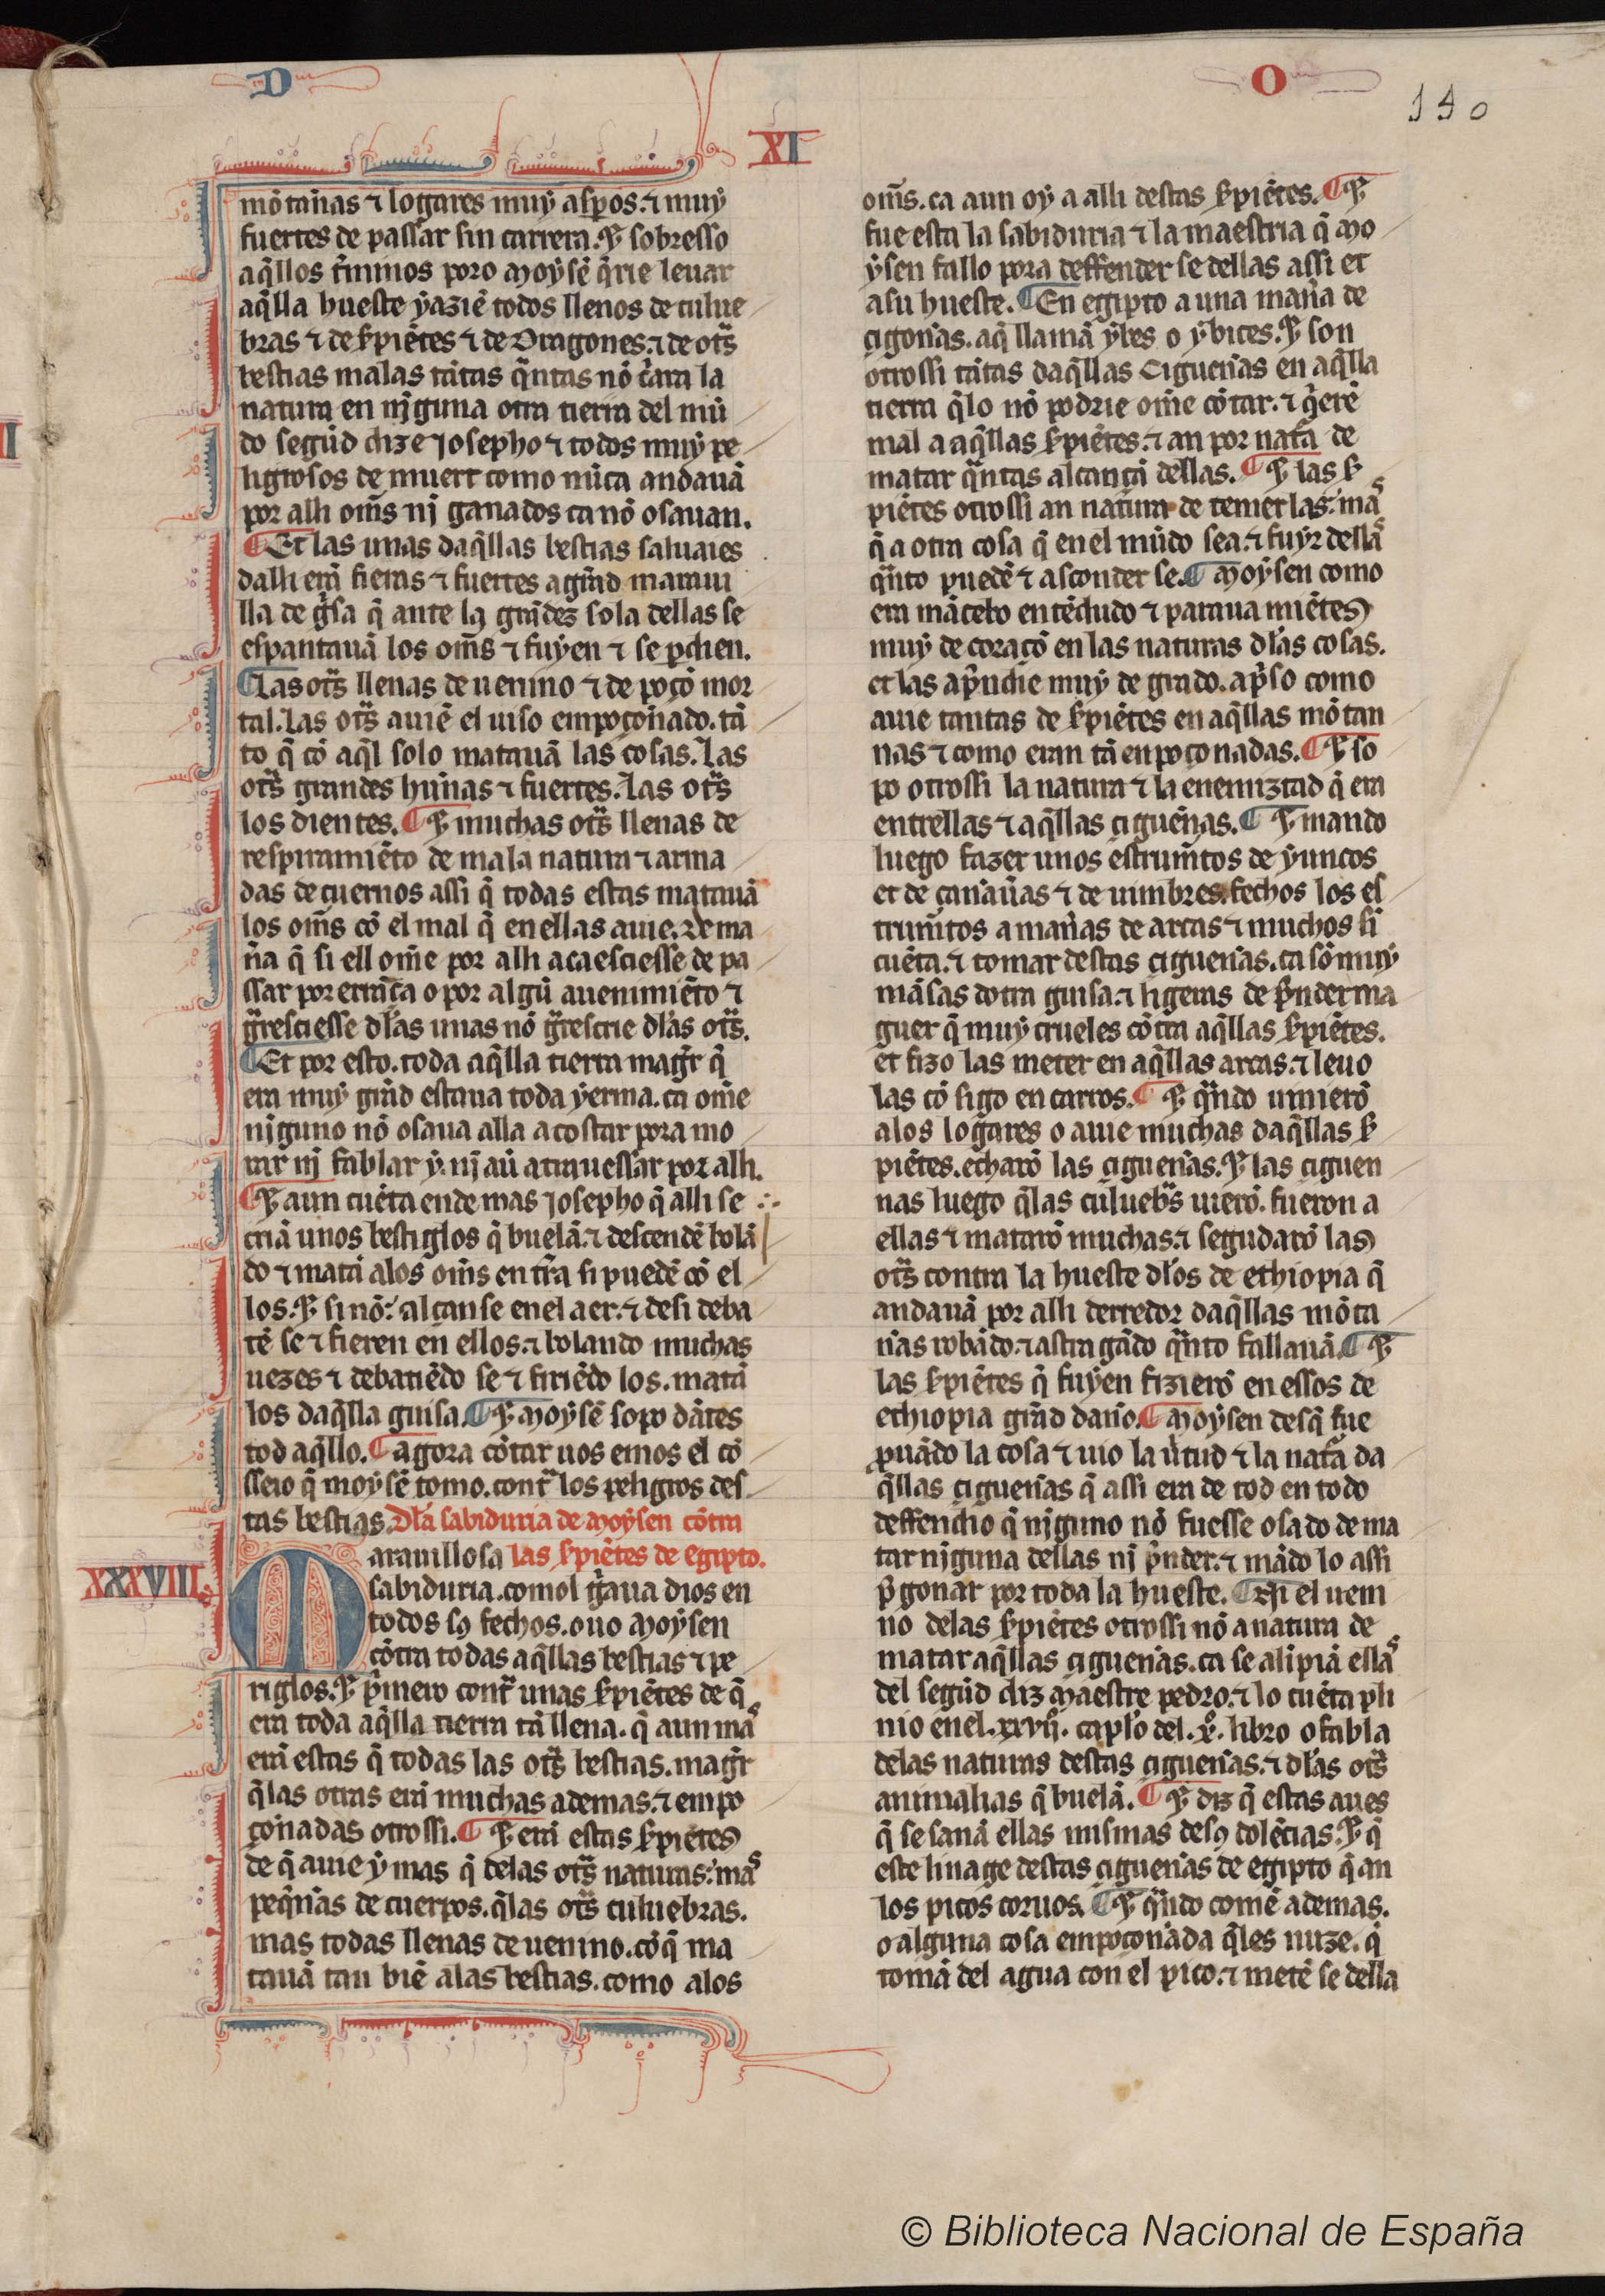 D
O
140
XI
mōtannas ⁊ logares muy aspos. ⁊ muy
fuertes de passar sin carrera. ⁊ sobresso
aq̄llos t̄minos poro moysē q̄rie leuar
aq̄lla hueste yaziē todos llenos de culue
bras ⁊ de s̄piētes ⁊ de dragones. ⁊ de ot̄s
bestias malas tātas q̄ntas nō c̄ara la
natura en njguna otra tierra del mū
do segūd dize josepho ⁊ todos muy pe
ligrosos de muert como nūca andauā
por alli om̄s nj ganados ca nō osauan.
Et las unas daq̄llas bestias saluaies
dalli erā fieras ⁊ fuertes a grād maraui
lla de ḡsa q̄ ante la grādez sola dellas se
espantauā los om̄s ⁊ fuyen ⁊ se p̄dien.
Las ot̄s llenas de uenino ⁊ de poçō mor
tal. Las ot̄s auiē el uiso empoçoñado. tā
to q̄ cō aq̄l solo matauā las cosas. Las
ot̄s grandes hunñas ⁊ fuertes. Las ot̄s
los dientes. ⁊ muchas ot̄s llenas de
respiramiēto de mala natura ⁊ arma
das de cuernos assi q̄ todas estas matauā
los om̄s cō el mal q̄ en ellas auie. ⁊ de ma
ña q̄ si ell om̄e por alli acaesciesse de pa
ssar por errāça o por algū auenimiēto ⁊
g̃resciesse dl̄as unas nō g̃rescrie dl̄as ot̄s.
Et por esto. toda aq̄lla tierra mag̃r q̄
era muy grād estaua toda yerma. ca om̄e
njguno nō osaua alla acostar pora mo
rar nj fablar y. nj aū atrauessar por alli.
⁊ aun cuēta ende mas josepho q̄ alli se
criā unos bestiglos q̄ buelā. ⁊ descendē bolā
do ⁊ matā alos om̄s en tr̄a si puedē cō el
los. ⁊ si nō: alçanse enel aer. ⁊ desi deba
tē se ⁊ fieren en ellos. ⁊ bolando muchas
uezes ⁊ debatiēdo se ⁊ firiēdo los. matā
los daq̄lla guisa. ⁊ moysē sopo dātes
tod aq̄llo. agora cōtar uos emos el cō
sseio q̄ moysē tomo. cont̄ los peligros des
tas bestias. Dl̄a sabiduria de moysen cōtra
las s̄piētes de egipto.
XXXVIII
Marauillosa
sabiduria. comol g̃aua dios en
todos sꝯ fechos. ouo moysen
cōtra todas aq̄llas bestias ⁊ pe
riglos. ⁊ p̄mero cont̄ unas s̄piētes de q̄
era toda aq̄lla tierra tā llena. q̄ aun mas
erā estas q̄ todas las ot̄s bestias. mag̃r
q̄las otras erā muchas ademas. ⁊ empo
çoñadas otrossi. ⁊ erā estas s̄piētes
de q̄ auie y mas q̄ delas ot̄s naturas: mas
peq̄ñas de cuerpos. q̄las ot̄s culuebras.
mas todas llenas de uenino. cō q̄ ma
tauā tan biē alas bestias. como alos
om̄s. ca aun oy a alli destas s̄piētes. ⁊
fue esta la sabiduria ⁊ la maestria q̄ mo
ysen fallo pora deffender se dellas assi et
asu hueste. En egipto a una maña de
çigoñas. aq̄ llamā ybes o ybices. ⁊ son
otrossi tātas daq̄llas Cigueñas en aq̄lla
tierra q̄lo nō podrie om̄e cōtar. ⁊ q̄erē
mal a aq̄llas s̄piētes. ⁊ an por nat̄a de
matar q̄ntas alcançā dellas. ⁊ las s̄
piētes otrossi an natura de temerlas: mas
q̄ a otra cosa q̄ enel mūdo sea. ⁊ fuyr dellas
q̄nto puedē ⁊ asconder se. Moysen como
era mācebo entēdudo ⁊ paraua miētes
muy de coraçō en las naturas dl̄as cosas.
et las ap̄ndie muy de grado. ap̄so como
auie tantas de s̄piētes en aq̄llas mōtan
nas ⁊ como eran tā enpoçonadas. ⁊ so
po otrossi la natura ⁊ la enemiztad q̄ era
entrellas ⁊ aq̄llas çigueñas. ⁊ mando
luego fazer unos estrum̄tos de yuncos
et de cañaueras ⁊ de uimbres. fechos los es
trum̄tos a mañas de arcas ⁊ muchos si
cuēta. ⁊ tomar destas çigueñas. ca sō muy
māsas dotra guisa. ⁊ ligeras de p̄nder ma
guer q̄ muy crueles cōtra aq̄llas s̄piētes.
et fizo las meter en aq̄llas arcas. ⁊ leuo
las cō sigo en carros. ⁊ q̄ndo uinierō
alos logares o auie muchas daq̄llas s̄
piētes. echarō las çigueñas. ⁊ las çiguen
nas luego q̄las culueb̄s uierō. fueron a
ellas ⁊ matarō muchas. ⁊ segudarō las
ot̄s contra la hueste dl̄os de ethiopia q̄
andauā por alli derredor daq̄llas mōta
ñas robādo. ⁊ astragādo q̄nto fallauā. ⁊
las s̄piētes q̄ fuyen fizierō en essos de
ethiopia grād daño. Moysen desq̄ fue
p̄uādo la cosa ⁊ uio la ūtud ⁊ la nat̄a da
q̄llas çigueñas q̄ assi era de tod en todo
deffendio q̄ njguno nō fuesse osado de ma
tar njguna dellas nj p̄nder. ⁊ mādo lo assi
p̄gonar por toda la hueste. Et si el ueni
no delas s̄piētes otrossi nō a natura de
matar aq̄llas çigueñas. ca se alipiā ellas
del segūd diz maestre pedro. ⁊ lo cuēta pli
nio enel. xxvij. capl̄o del. x̊. libro o fabla
delas naturas destas çigueñas. ⁊ dl̄as ot̄s
animalias q̄ buelā. ⁊ diz q̄ estas aues
q̄ se sanā ellas mismas de sꝯ dolēcias. ⁊ q̄
este linage destas çigueñas de egipto q̄ an
los picos coruos. ⁊ q̄ndo comē ademas.
o alguna cosa empoçoñada q̄les nuze. q̄
tomā del agua con el pico. ⁊ metē se della
© Biblioteca Nacional de España